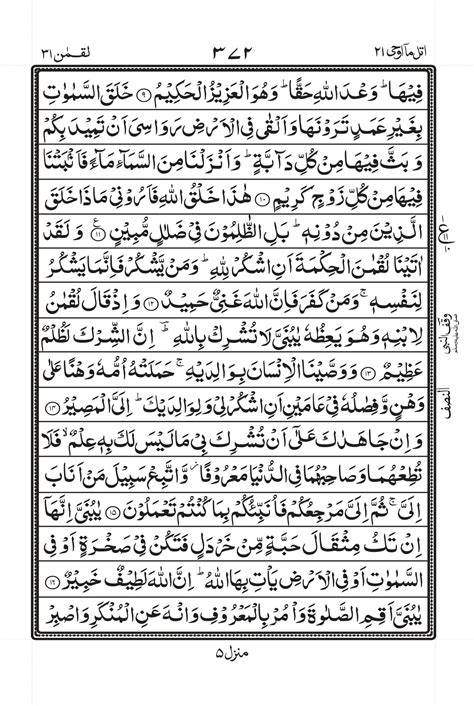 اتل مآ اوحی ۲۱ ۳۷۲ لقمٰن ۳۱
فِيْهَا ؕ وَعْدَ اللّٰهِ حَقًّا ؕ وَهُوَ الْعَزِيْزُ الْحَكِيْمُ ۹ خَلَقَ السَّمٰوٰتِ
بِغَيْرِ عَمَدٍ تَرَوْنَهَا وَاَلْقٰى فِى الْاَرْضِ رَوَاسِىَ اَنْ تَمِيْدَ بِكُمْ
وَ بَثَّ فِيْهَا مِنْ كُلِّ دَآبَّةٍ ؕ وَ اَنْزَلْنَا مِنَ السَّمَآءِ مَآءً فَاَنْۢبَتْنَا
فِيْهَا مِنْ كُلِّ زَوْجٍ كَرِيْمٍ ۱۰ هٰذَا خَلْقُ اللّٰهِ فَاَرُوْنِىْ مَاذَا خَلَقَ
الَّذِيْنَ مِنْ دُوْنِهٖ ؕ بَلِ الظّٰلِمُوْنَ فِىْ ضَلٰلٍ مُّبِيْنٍ ۱۱ وَ لَقَدْ
اٰتَيْنَا لُقْمٰنَ الْحِكْمَةَ اَنِ اشْكُرْ لِلّٰهِ ؕ وَمَنْ يَّشْكُرْ فَاِنَّمَا يَشْكُرُ
لِنَفْسِهٖ ۚ وَمَنْ كَفَرَ فَاِنَّ اللّٰهَ غَنِىٌّ حَمِيْدٌ ۱۲ وَ اِذْ قَالَ لُقْمٰنُ
لِابْنِهٖ وَهُوَ يَعِظُهٗ يٰبُنَىَّ لَا تُشْرِكْ بِاللّٰهِ ؕ اِنَّ الشِّرْكَ لَظُلْمٌ
عَظِيْمٌ ۱۳ وَوَصَّيْنَا الْاِنْسَانَ بِوَالِدَيْهِ ۚ حَمَلَتْهُ اُمُّهٗ وَهْنًا عَلٰى
وَهْنٍ وَّفِصٰلُهٗ فِىْ عَامَيْنِ اَنِ اشْكُرْ لِىْ وَلِوَالِدَيْكَ ؕ اِلَىَّ الْمَصِيْرُ ۱۴
وَاِنْ جَاهَدٰكَ عَلٰٓى اَنْ تُشْرِكَ بِىْ مَا لَيْسَ لَكَ بِهٖ عِلْمٌ ۙ فَلَا
تُطِعْهُمَا وَصَاحِبْهُمَا فِى الدُّنْيَا مَعْرُوْفًا ؗ وَّاتَّبِعْ سَبِيْلَ مَنْ اَنَابَ
اِلَىَّ ۚ ثُمَّ اِلَىَّ مَرْجِعُكُمْ فَاُنَبِّئُكُمْ بِمَا كُنْتُمْ تَعْمَلُوْنَ ۱۵ يٰبُنَىَّ اِنَّهَاۤ
اِنْ تَكُ مِثْقَالَ حَبَّةٍ مِّنْ خَرْدَلٍ فَتَكُنْ فِىْ صَخْرَةٍ اَوْ فِى
السَّمٰوٰتِ اَوْ فِى الْاَرْضِ يَاْتِ بِهَا اللّٰهُ ؕ اِنَّ اللّٰهَ لَطِيْفٌ خَبِيْرٌ ۱۶
يٰبُنَىَّ اَقِمِ الصَّلٰوةَ وَاْمُرْ بِالْمَعْرُوْفِ وَانْهَ عَنِ الْمُنْكَرِ وَاصْبِرْ
وقف النبی
النصف
منزل ۵